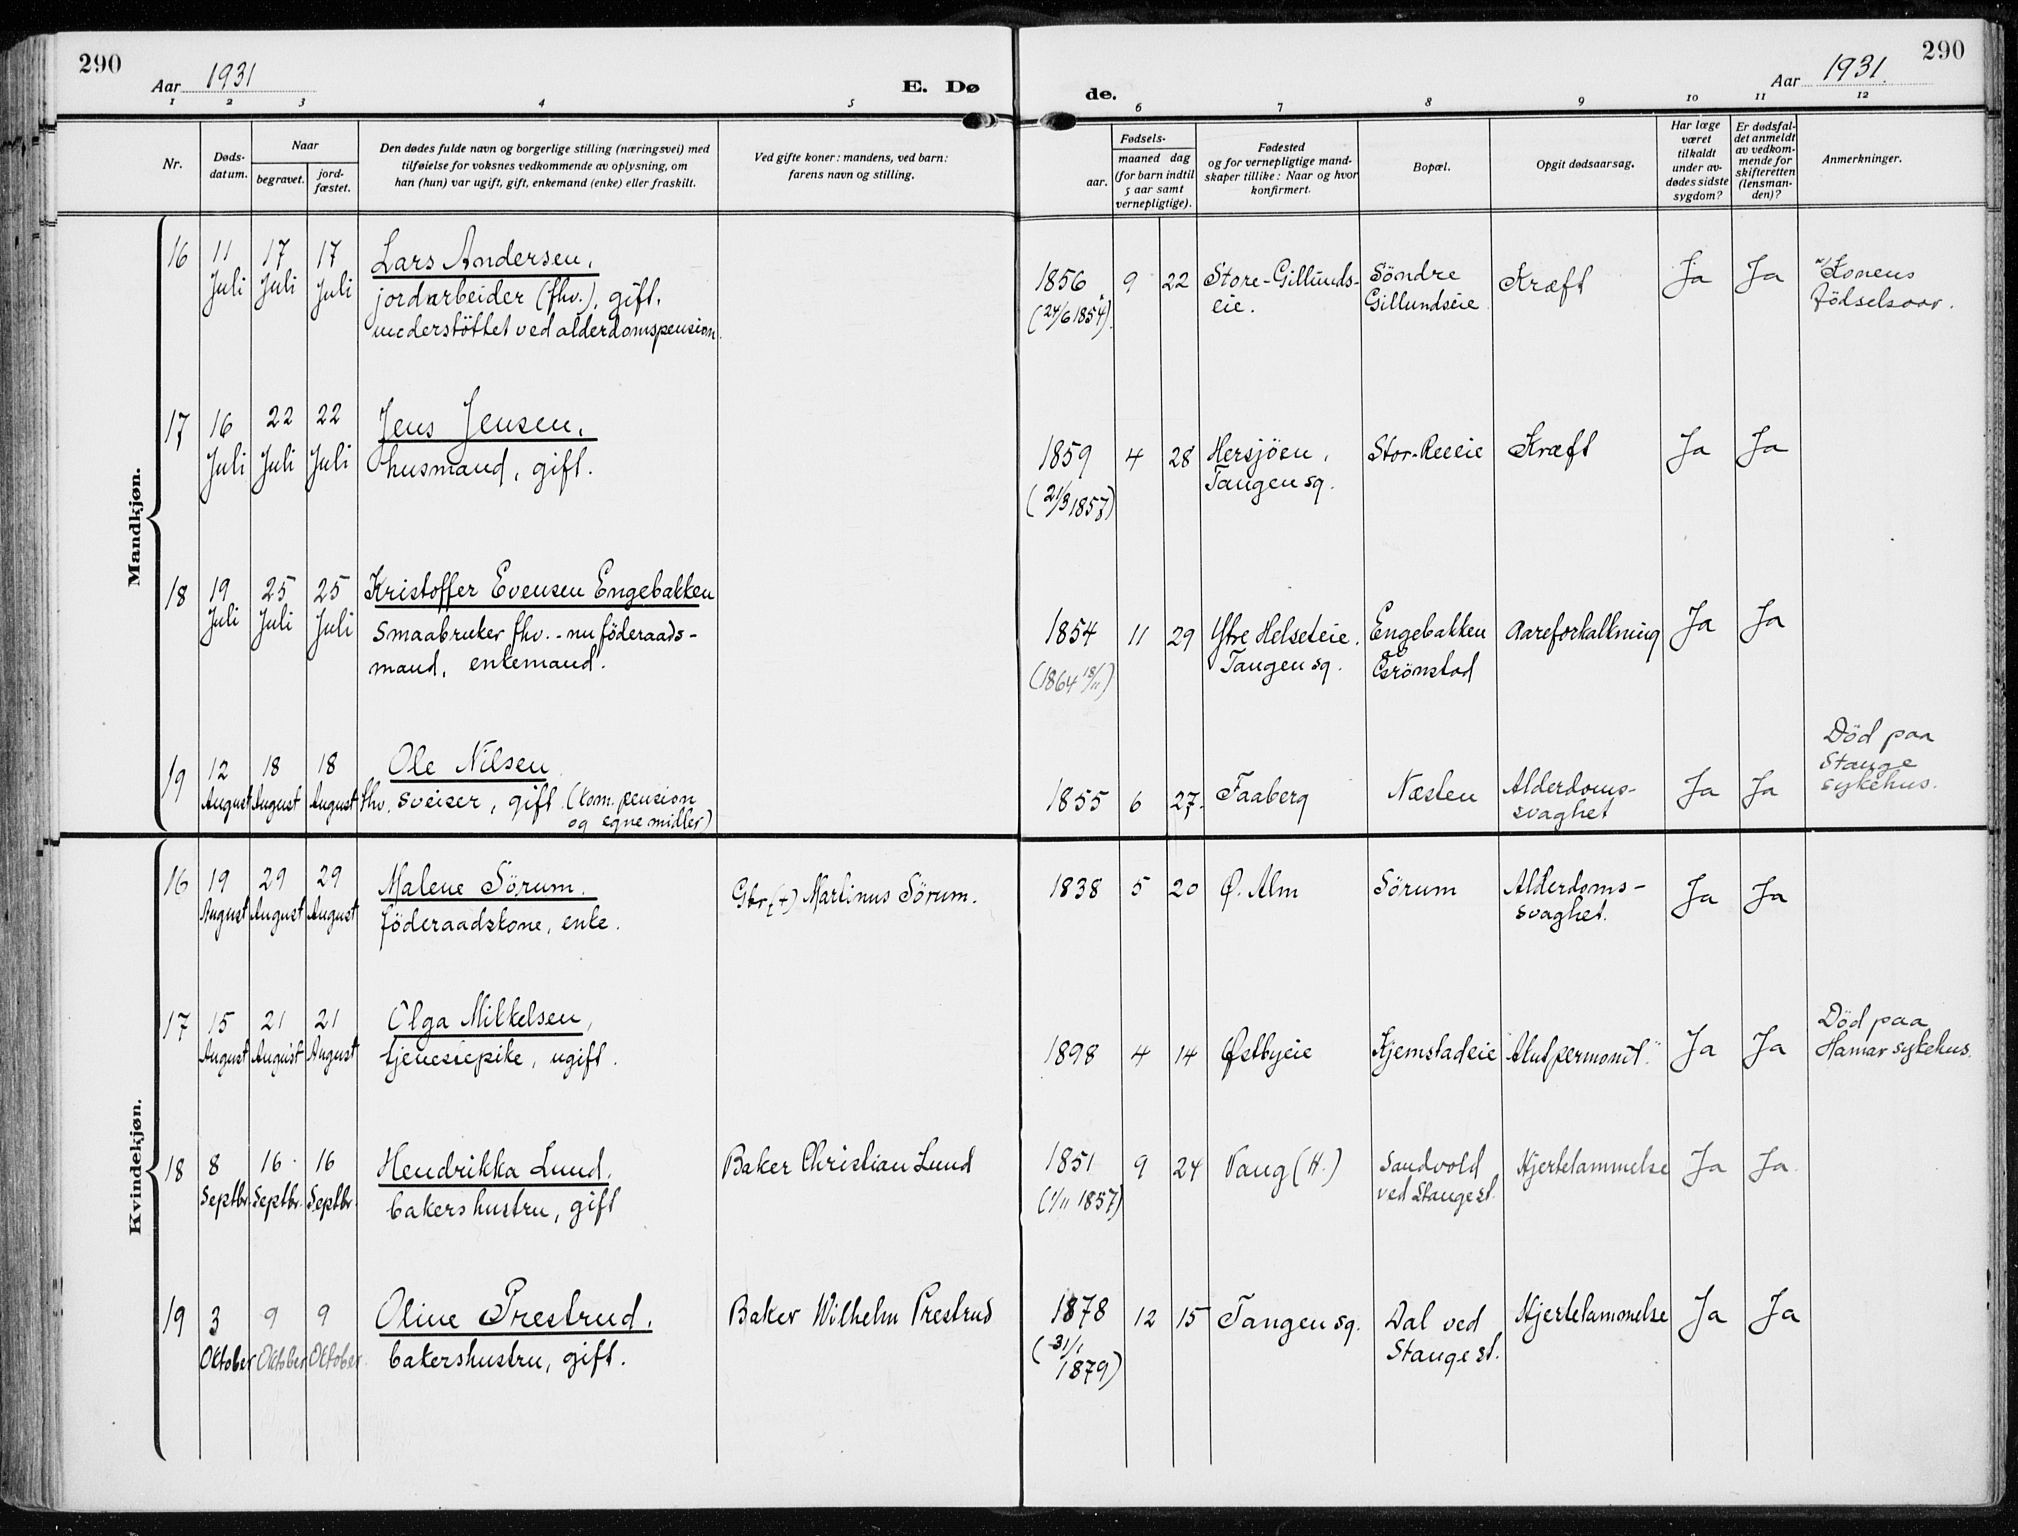 290
Aar 1931
E. Dø
de.
Aar 1931.
290
1 2 3 4 5 6 7 8 9 10 11 12
Nr.
Døds-
datum.
Naar
begravet.
jord-
fæstet.
Den dødes fulde navn og borgerlige stilling (næringsvei) med
tilføielse for voksnes vedkommende av oplysning, om
han (hun) var ugift, gift, enkemand (enke) eller fraskilt.
Ved gifte koner: mandens, ved barn:
farens navn og stilling.
Fødsels-
aar.
maaned dag
(for barn indtil
5 aar samt
vernepligtige).
Fødested
og for vernepligtige mand-
skaper tillike: Naar og hvor
konfirmert.
Bopæl.
Opgit dødsaarsag.
Har læge
været
tilkaldt
under av-
dødes sidste
sygdom?
Er dødsfal-
det anmeldt
av vedkom-
mende for
skifteretten
(lensman-
den)?
Anmerkninger.
Mandkjøn.
16 11 Juli 17 Juli 17 Juli
Lars Andersen,
jordarbeider (fhv.), gift.
understöttet ved alderdomspension
1856 9 22
(24/6 1854).
Store-Gillunds-
eie.
Söndre
Gillundseie
Kræft Ja Ja
Konens
födselsaar.
17 16 Juli 22 Juli 22 Juli
Jens Jensen,
husmand, gift.
1859 4 28
(21/3 1857)
Hersjöen,
Tangen sg.
Stor-Reeeie Kræft Ja Ja
18 19 Juli 25 Juli 25 Juli
Kristoffer Evensen Engebakken
Smaabruker fhv. - nu föderaads-
mand, enkemand.
1854 11 29
(1864 18/11)
Ytre Helseteie.
Tangen sg.
Engebakken
Grönstad
Aareforkalkning Ja Ja
19 12 August 18 August 18 August
Ole Nilsen
fhv. sveiser, gift (kom. pension
og egne midler)
1855 6 27.
Faaberg
Næsten
Alderdoms-
svaghet
Ja Ja
Död paa
Stange
sykehus.
Kvindekjøn.
16 19 August 29 August 29 August
Malene Sörum.
föderaadskone, enke.
Gbr. (+) Martinus Sörum.
1838 5 20
Ø. Alm
Sörum
Alderdoms-
svaghet.
Ja Ja
17 15 August 21 August 21 August
Olga Mikkelsen,
tjenestepike, ugift.
1898 4 14
Østbyeie
Hjemstadeie
Ja Ja
Död paa
Hamar sykehus.
18 8 Septbr. 16 Septbr. 16 Septbr.
Hendrikka Lund,
bakershustru, gift
Baker Christian Lund
1851 9 24
(1/11 1857)
Vang (H.)
Sandvold
ved Stange st.
Hjertelammelse Ja Ja.
19 3 Oktober 9 Oktober 9 Oktober.
Oline Prestrud.
bakershustru, gift.
Baker Wilhelm Prestrud
1878 12 15
(31/1
1879)
Tangen sg.
Dal ved
Stange st.
Hjertelammelse Ja Ja